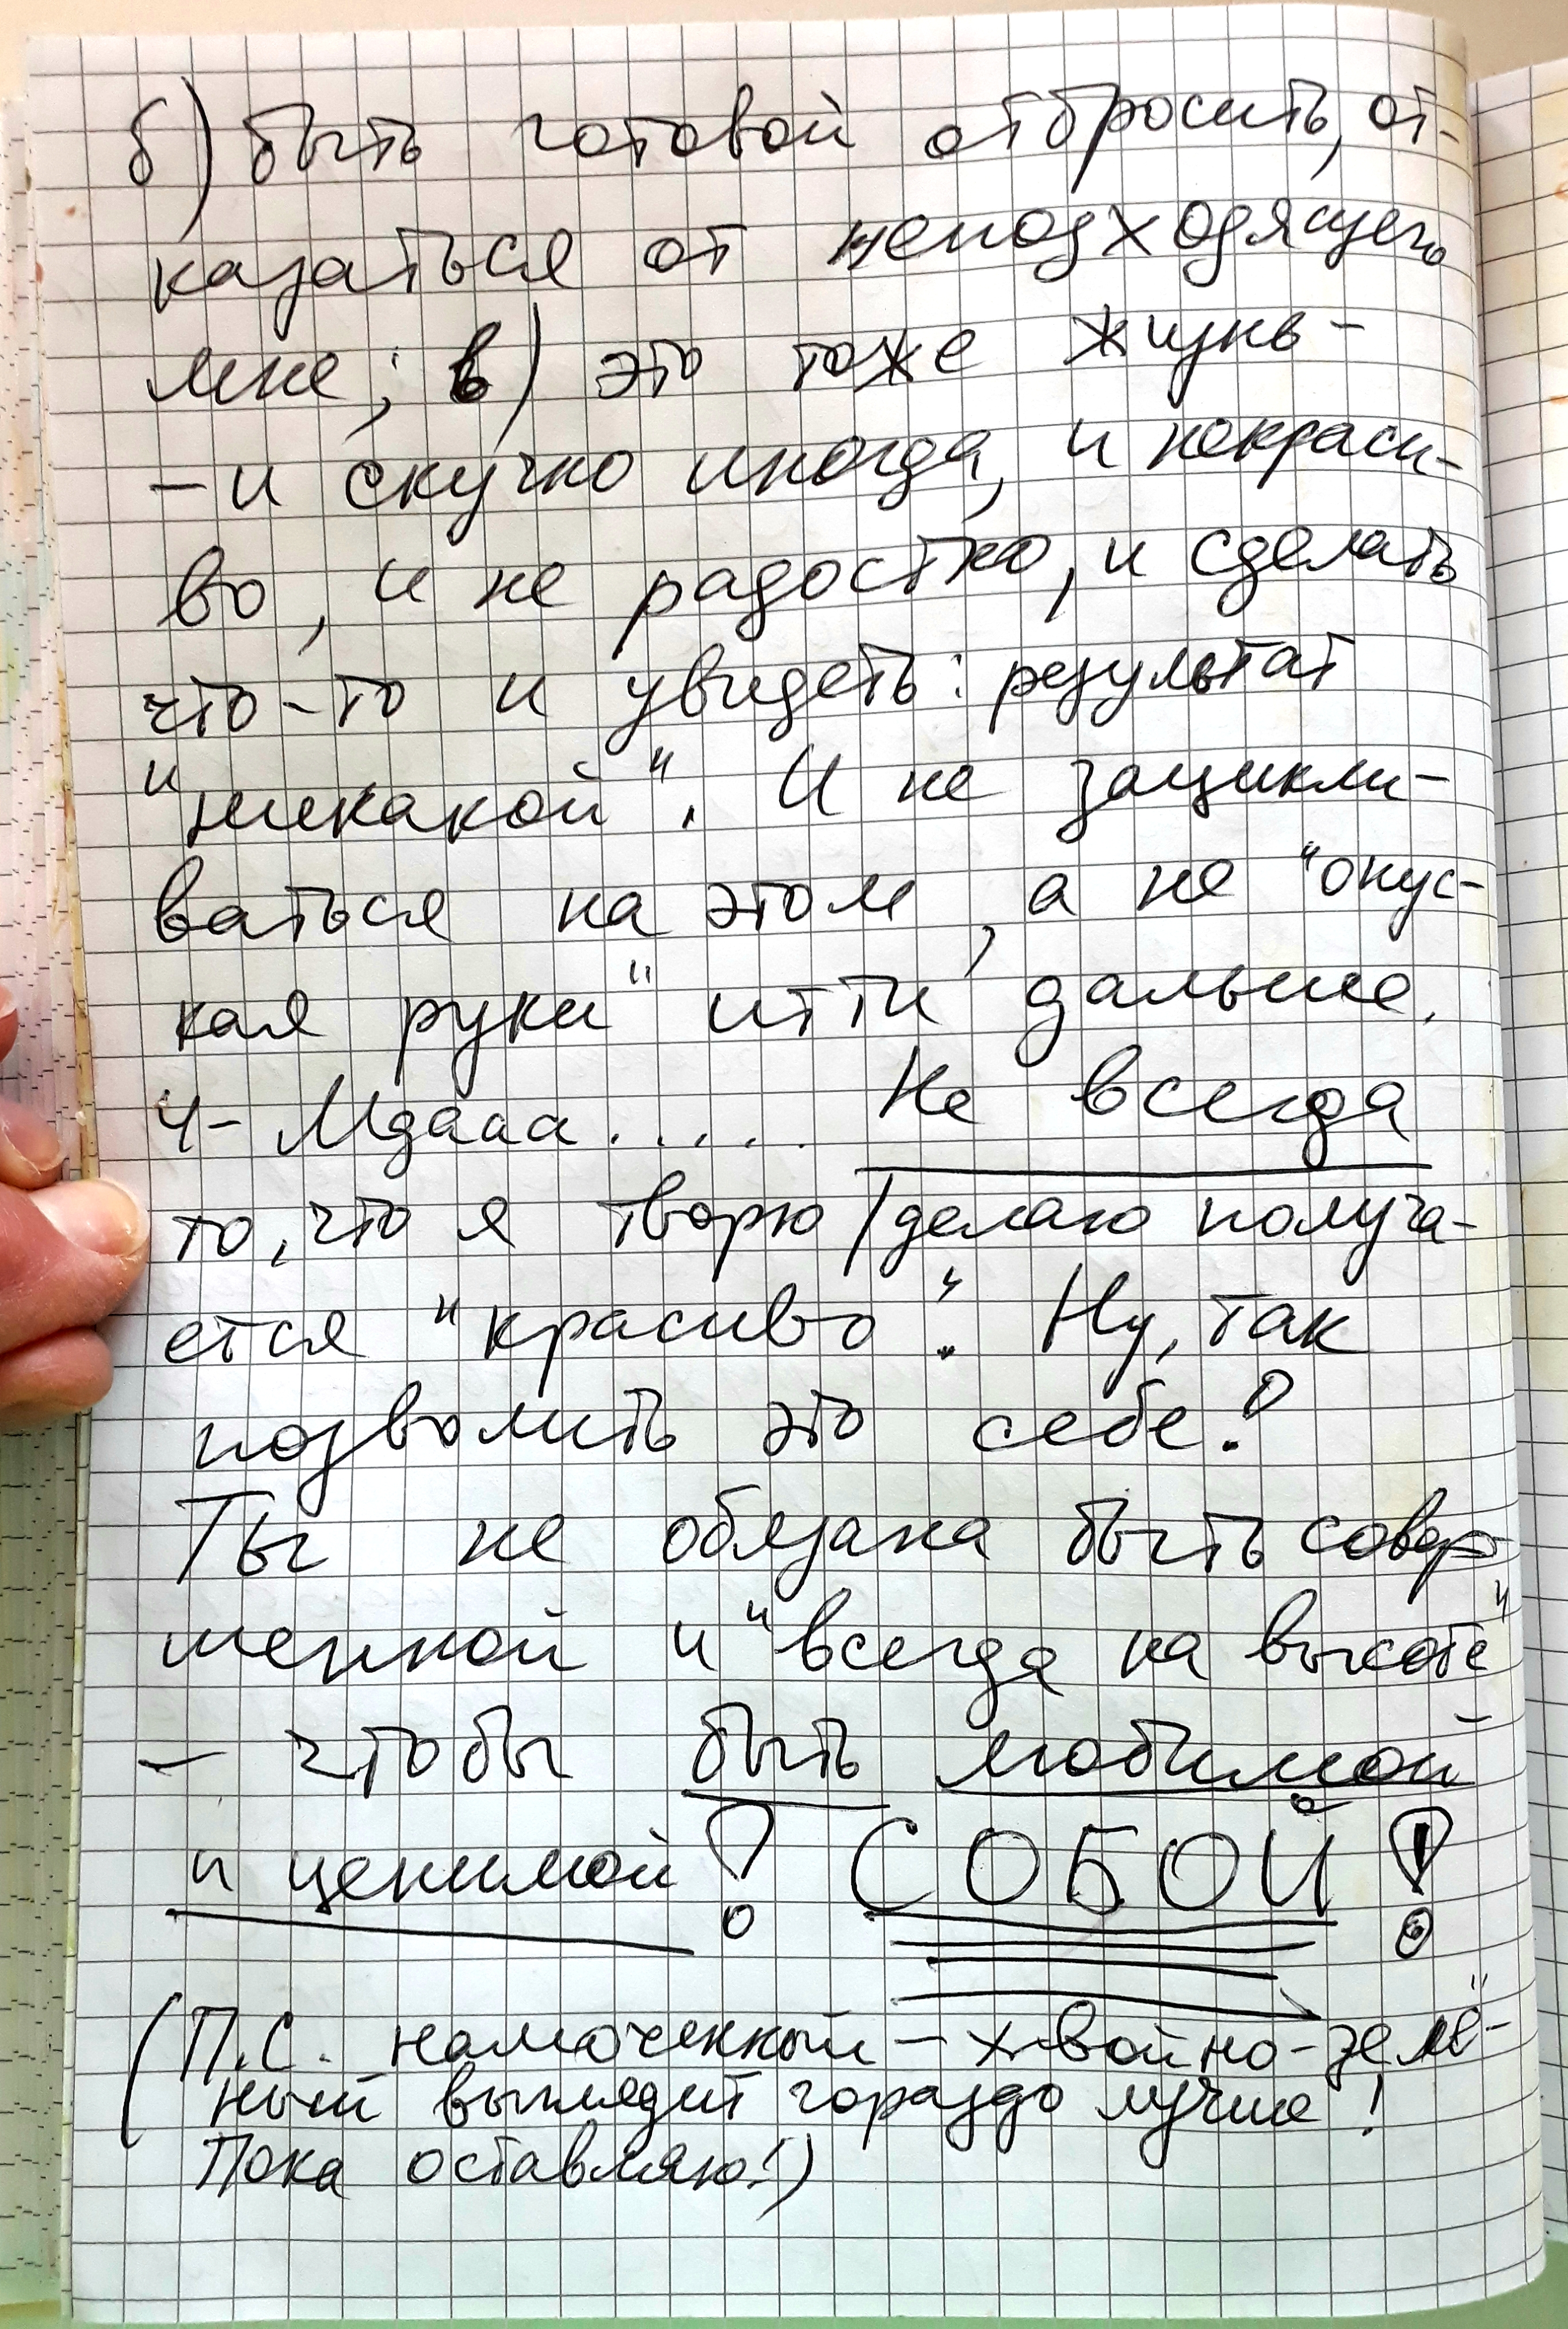 б) быть готовой отбросить, от-
казаться от неподходящего
мне; в) это тоже жизнь -
- и скучно иногда, и некраси-
во, и не радостно, и сделать
что-то и увидеть: результат
"никакой". И не зацикли-
ваться на этом, а не "опус-
кая руки" итти дальше.
4- Мдааа..... Не всегда
то, что я творю/делаю получа-
ется "красиво". Ну, так
позволить это себе!
Ты не обязана быть совер-
шенной и "всегда на высоте"
- чтобы быть любимой
и ценимой! СОБОЙ!
(П.С. намоченный - хвойно-зелё-
ный выглядит гораздо лучше!
Пока оставляю!)